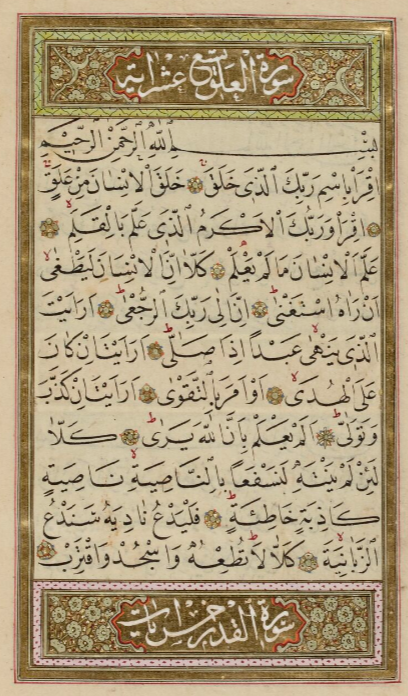 سورة العلق تسع عشر اية
بسم الله الرحمن الرحيم
اِقْرَأْ بِاسْمِ رَبِّكَ الَّذٖى خَلَقَ خَلَقَ الْاِنْسَانَ مِنْ عَلَقٍ
اِقْرَأْ وَرَبُّكَ الْاَكْرَمُ الَّذٖى عَلَّمَ بِالْقَلَمِ
عَلَّمَ الْاِنْسَانَ مَا لَمْ يَعْلَمْ كَلَّا اِنَّ الْاِنْسَانَ لَيَطْغٰى
اَنْ رَاٰهُ اسْتَغْنٰى اِنَّ اِلٰى رَبِّكَ الرُّجْعٰى اَرَاَيْتَ
الَّذٖى يَنْهٰى عَبْدًا اِذَا صَلّٰى اَرَاَيْتَ اِنْ كَانَ
عَلَى الْهُدٰى اَوْ اَمَرَ بِالتَّقْوٰى اَرَاَيْتَ اِنْ كَذَّبَ
وَتَوَلّٰى اَلَمْ يَعْلَمْ بِاَنَّ اللّٰهَ يَرٰى كَلَّا
لَئِنْ لَمْ يَنْتَهِ لَنَسْفَعًا بِالنَّاصِيَةِ نَاصِيَةٍ
كَاذِبَةٍ خَاطِئَةٍ فَلْيَدْعُ نَادِيَهُ سَنَدْعُ
الزَّبَانِيَةَ كَلَّا لَا تُطِعْهُ وَاسْجُدْ وَاقْتَرِبْ
سورة القدر خمس ايات